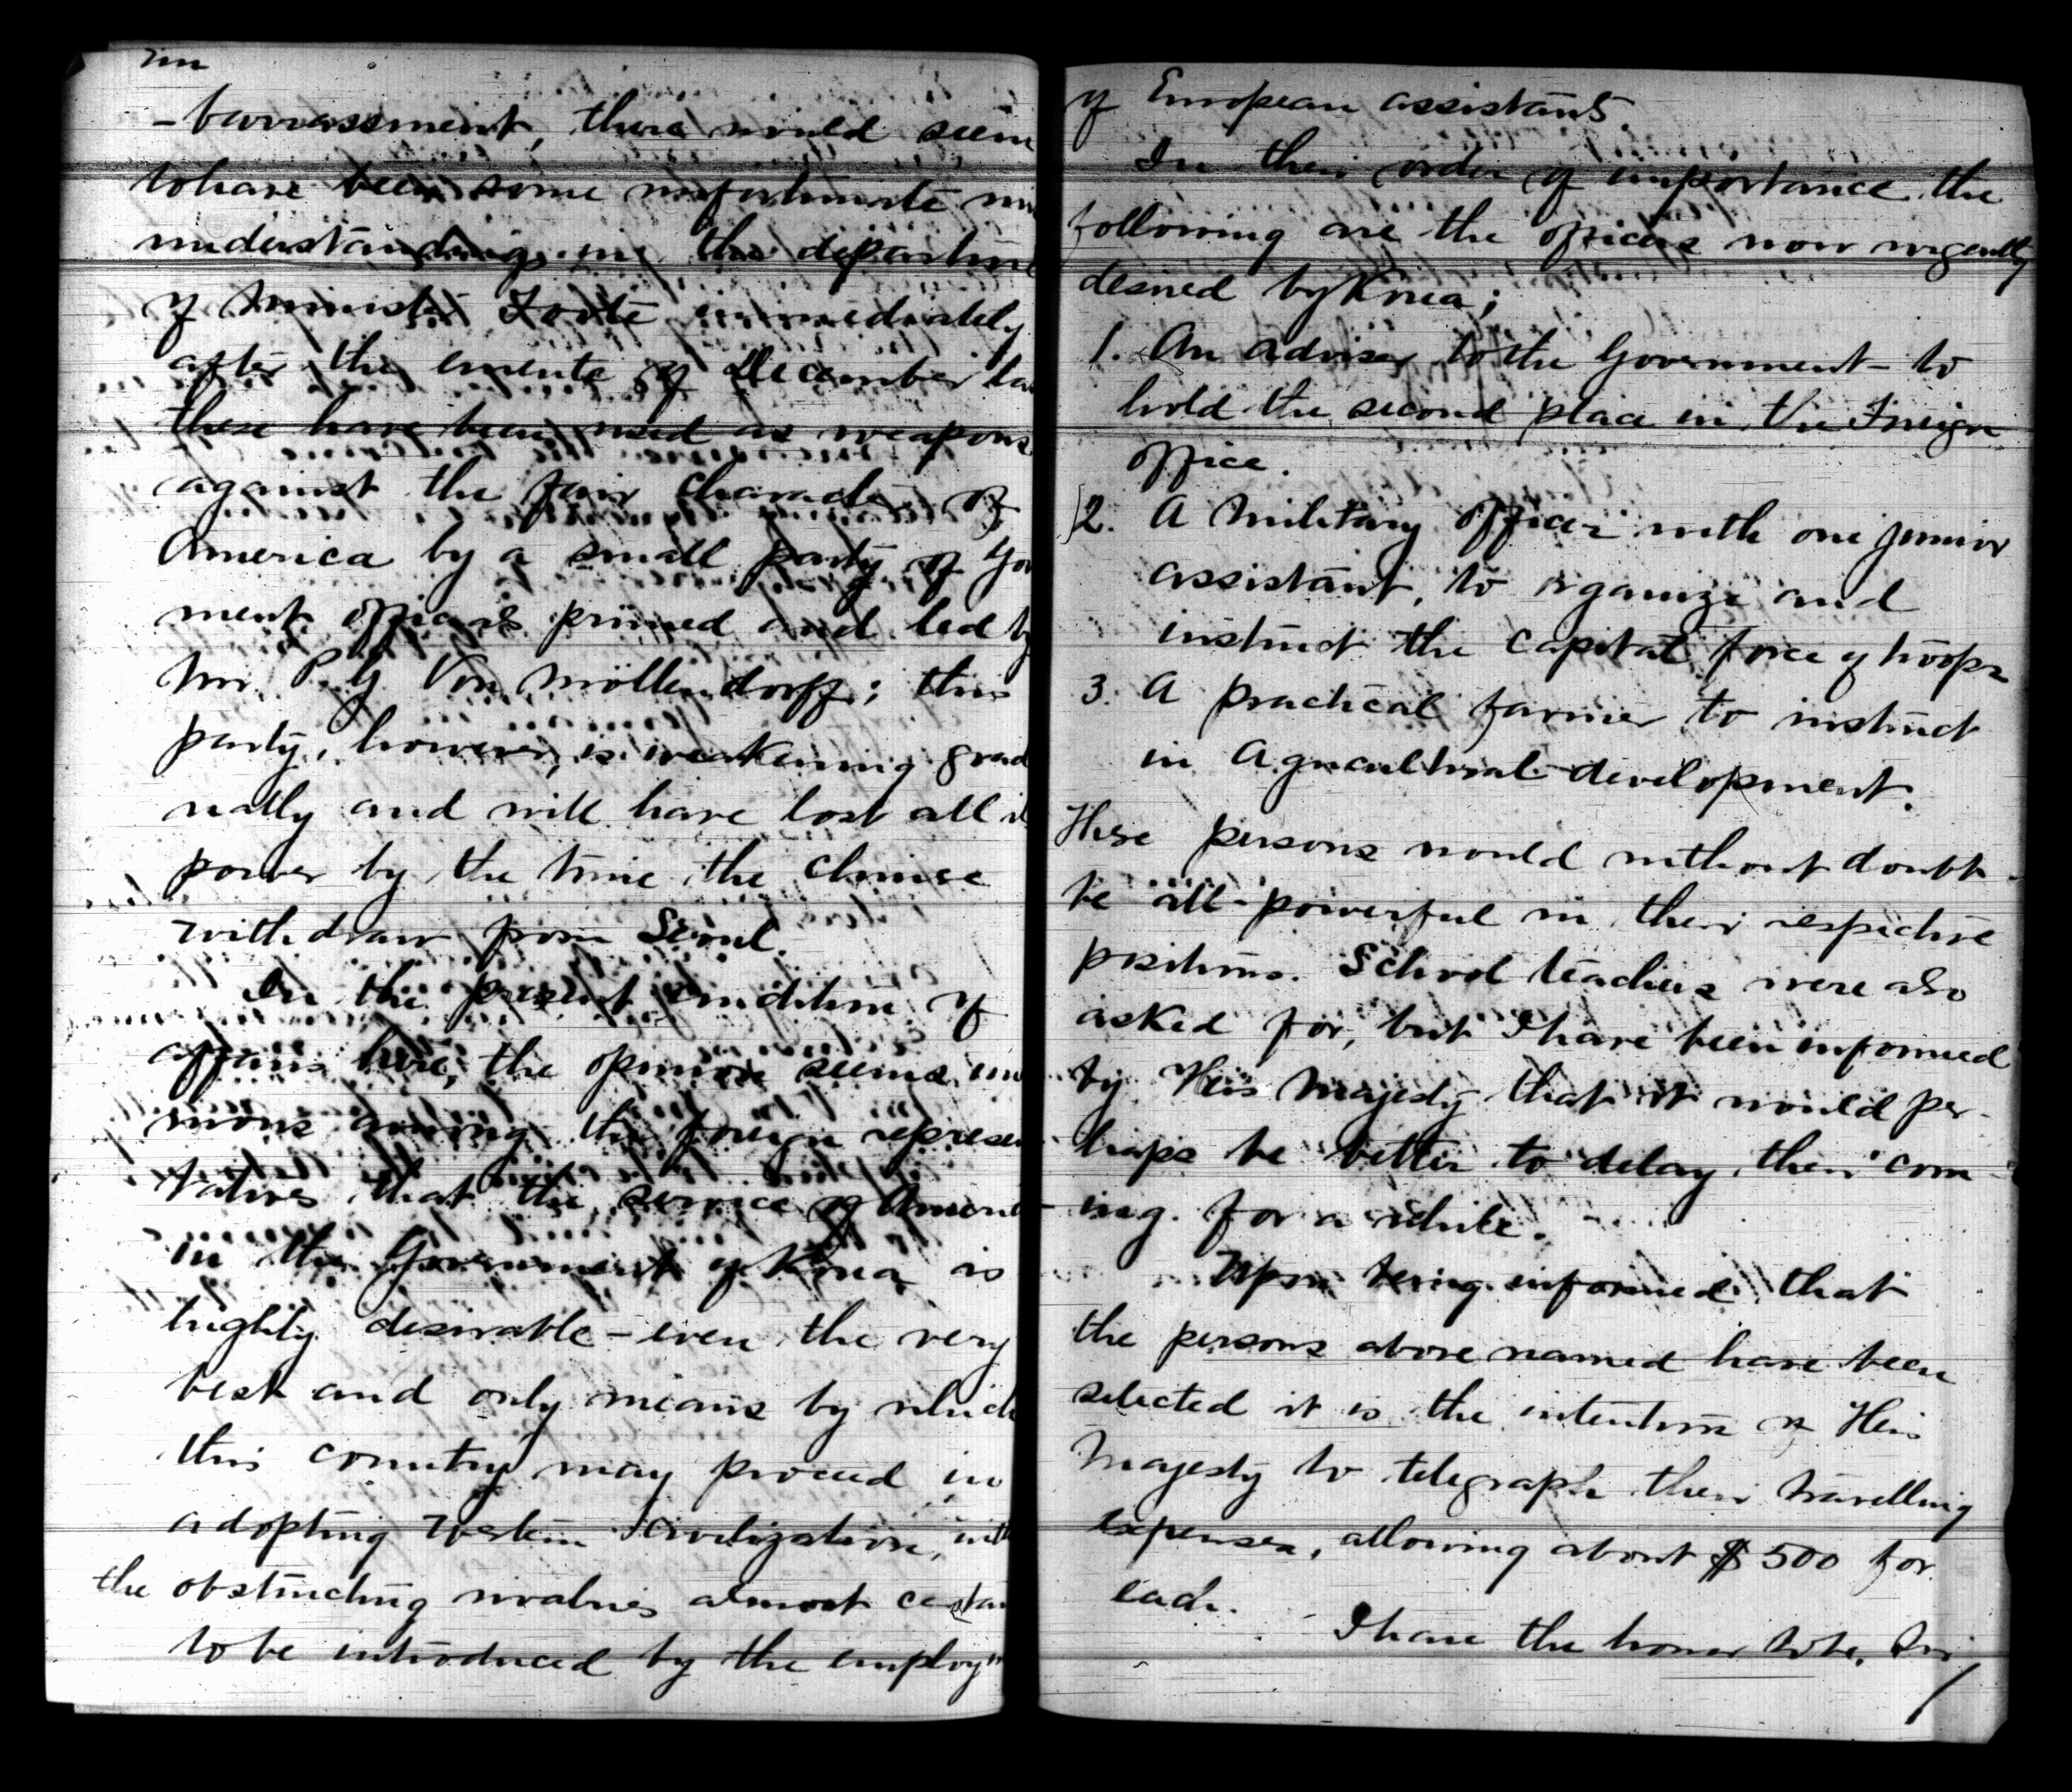 -barrassment, there would seem
to have been some unfortunate mis
understandings in the departme
of Minister Foote immediately
after the emeute of December las
these have been used as weapons
against the fair character of
America by a small party of Gov
ment officials primed and led by
Mr. P. G. Von Möllendorff; this
party, however, is weakening grad
ually and will have lost all it
power by the time the Chinese
withdraw from Seoul.
In the present condition of
affairs here, the opinion seems un
mous among the foreign represen
tatives that the service of Americ
in the Government of Korea is
highly desirable - even the very
best and only means by which
this country may proceed in
adopting Western civilization, with
the obstructing rivalries almost certai
to be introduced by the employm
of European assistants.
In their order of importance the
following are the officers now urgently
desired by Korea;
1. An adviser to the Government - to
hold the second place in the Foreign
office.
2. A military officer with one junior
assistant, to organize and
instruct the Capital force of troops
3. A practical farmer to instruct
in Agricultural development.
These persons would without doubt
be all-powerful in their respective
positions. School teachers were also
asked for, but I have been informed
by His Majesty that it would per-
haps be better to delay their com
ing for a while.
Upon being informed that
the persons above named have been
selected it is the intention of His
Majesty to telegraph their travelling
expenses, allowing about $500 for
each.
I have the honor to be, Sir,